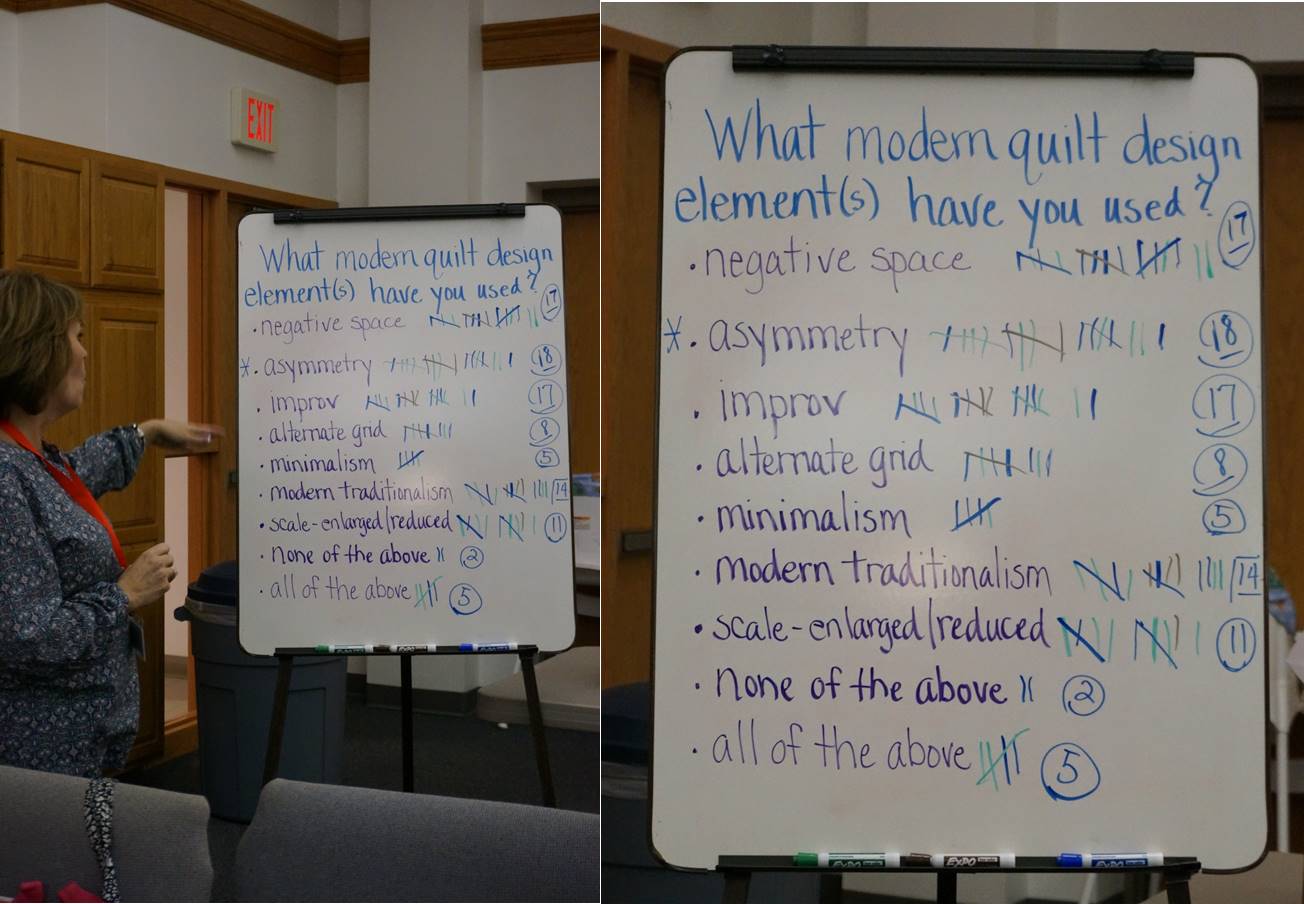 EXIT
What modern quilt design
element(s) have you used?
• negative space 17
* • asymmetry 18
• improv 17
• alternate grid 8
• minimalism 5
• modern traditionalism 14
• scale-enlarged/reduced 11
• none of the above 2
• all of the above 5
EXPO
What modern quilt design
element(s) have you used?
• negative space 17
* • asymmetry 18
• improv 17
• alternate grid 8
• minimalism 5
• modern traditionalism 14
• scale-enlarged/reduced 11
• none of the above 2
• all of the above 5
EXPO EXPO EXPO